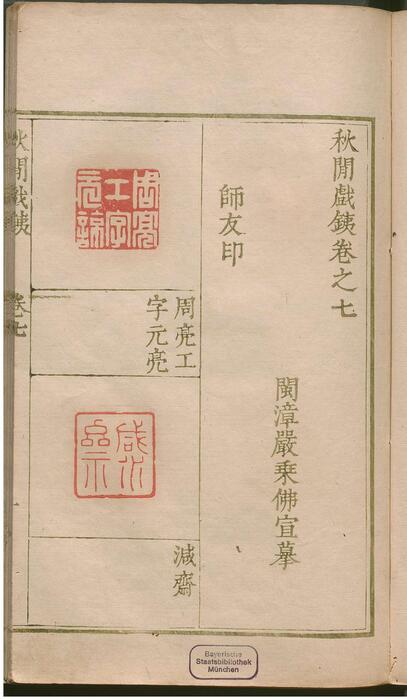 秋閒戲銕卷之七
師友印
閩漳嚴乗佛宣摹
周亮工
字元亮
減齋
秋閒戲銕
卷七
Bayerische
Staatsbibliothek
München